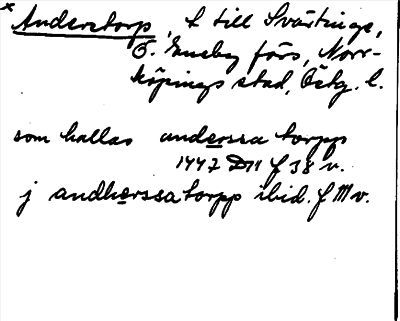 * Anderstorp, t till Svärtinge,
Ö. Eneby förs, Norr-
köpings stad, Östg. l.
som kallas anderssa torpp
1447 D11 f 38 v.
j andherssa torpp ibid. f M v.